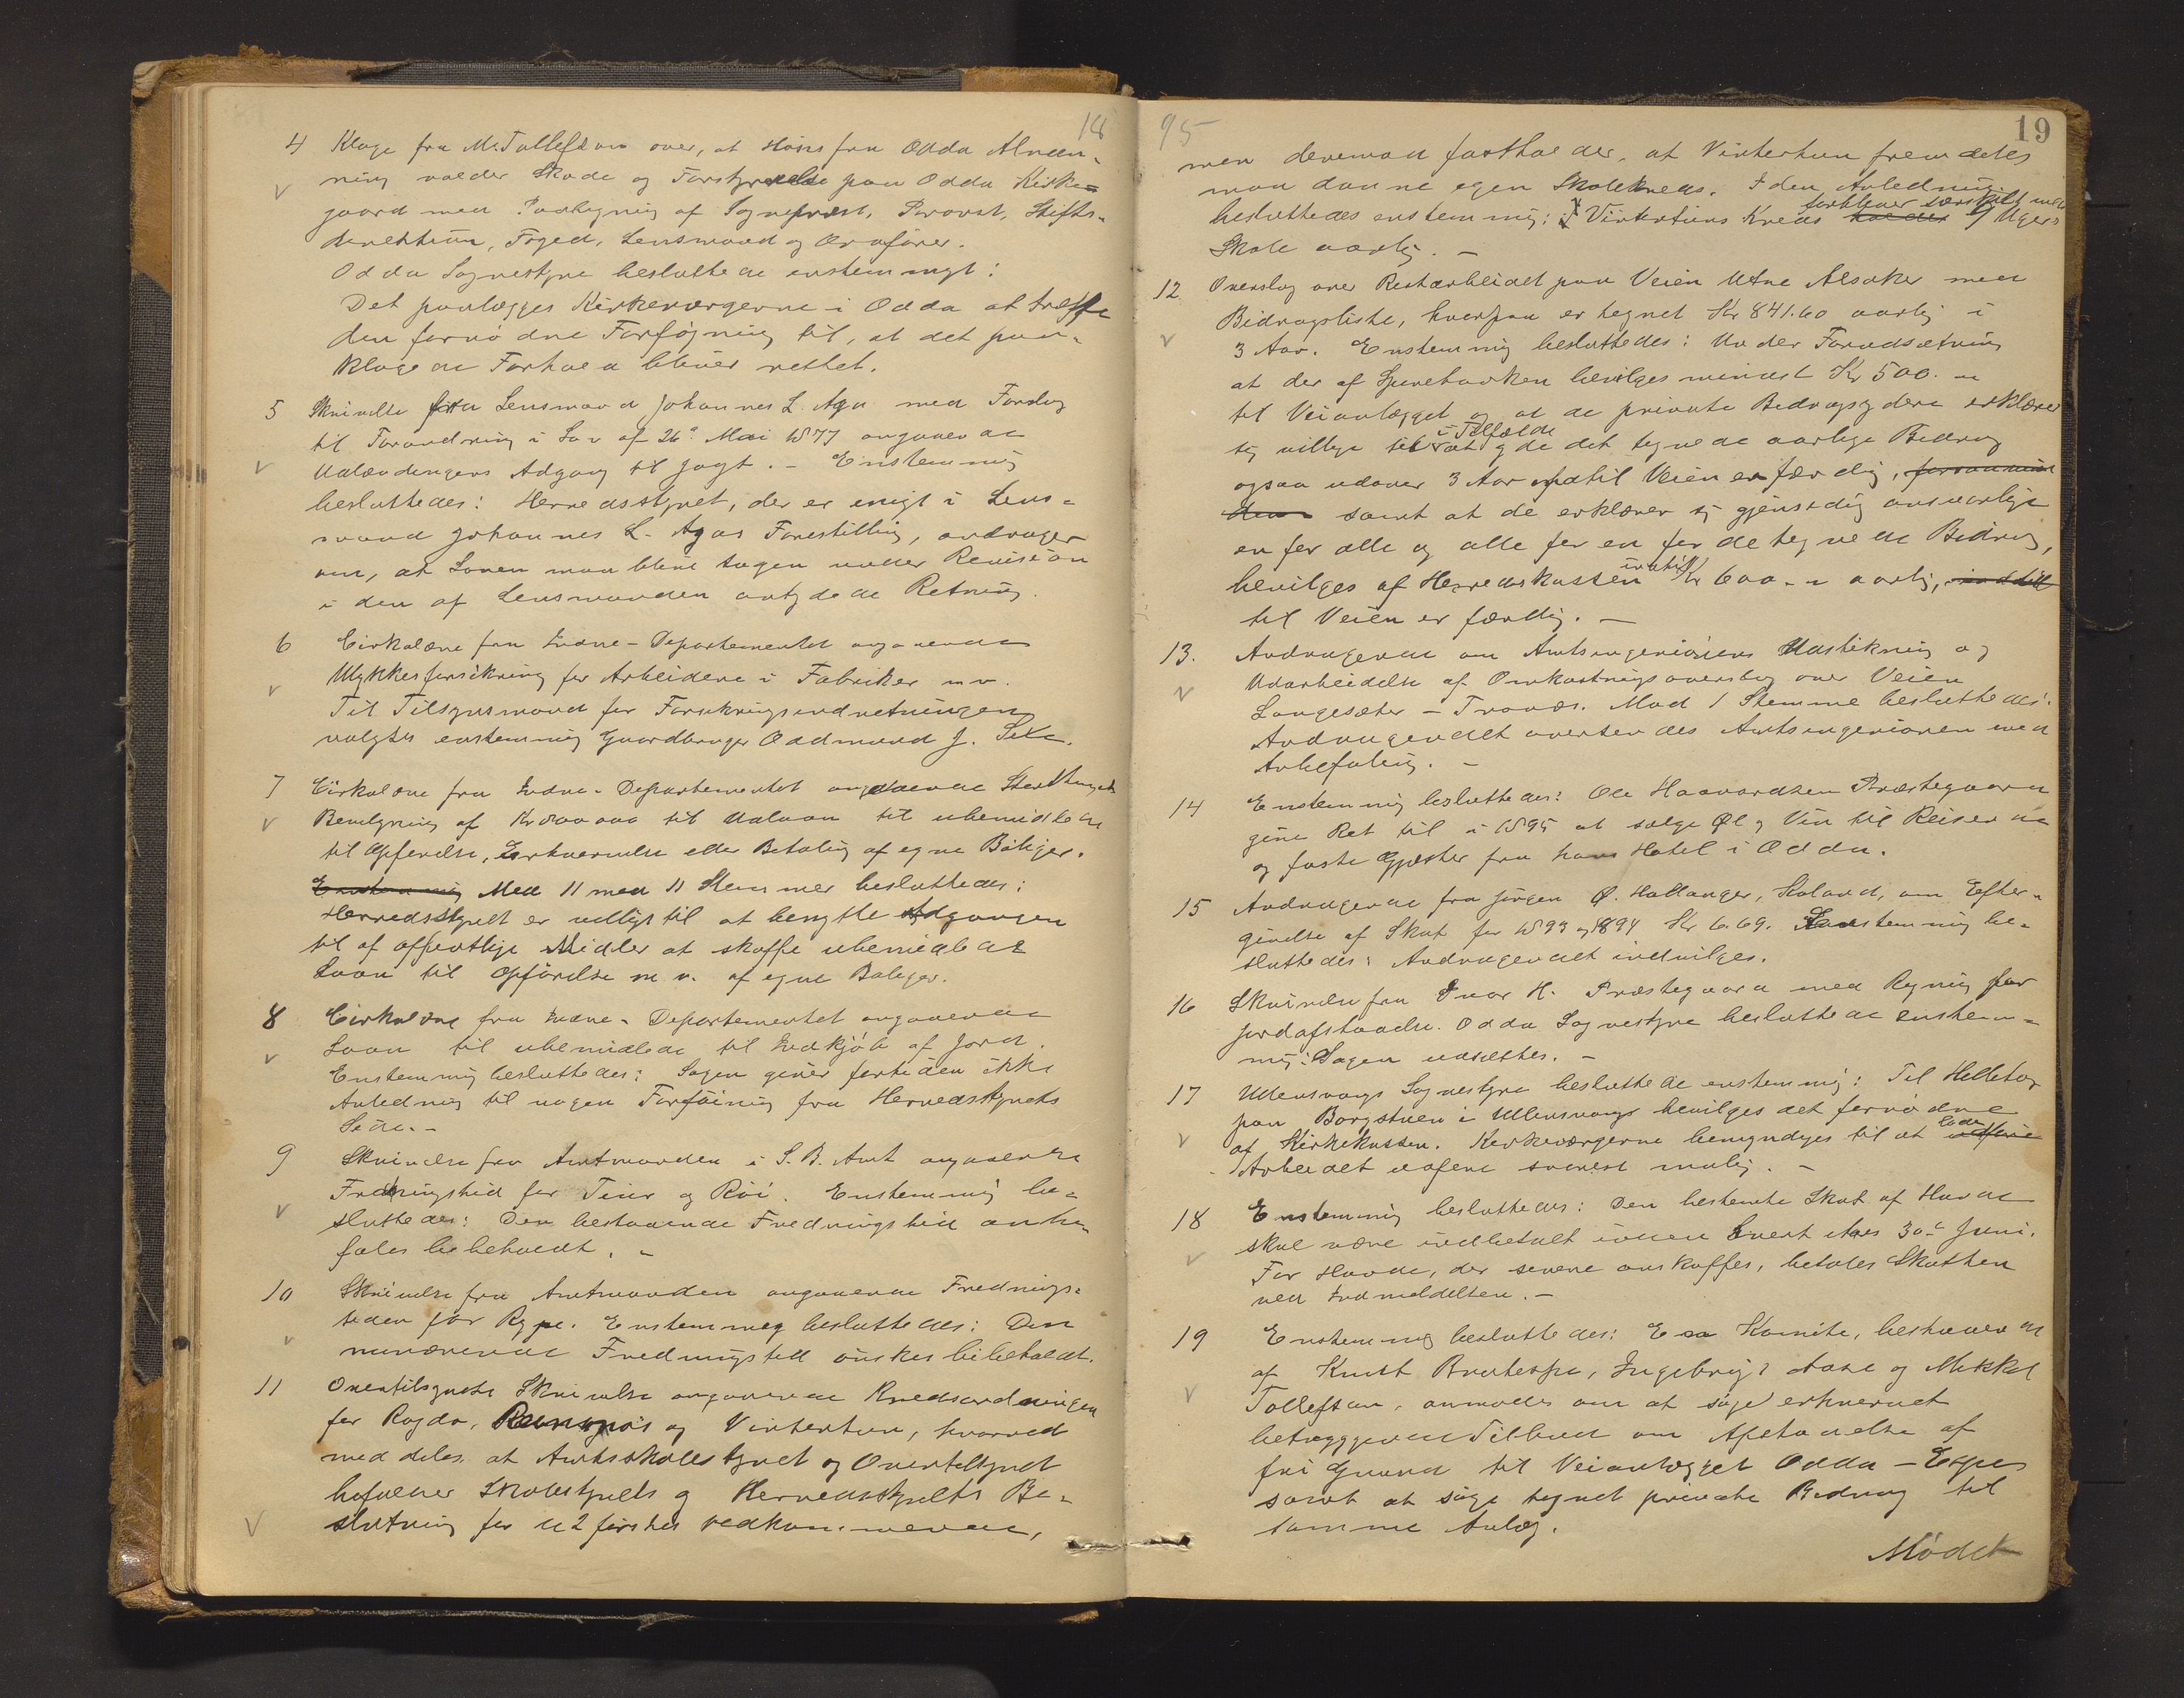 18
4 Klage fra M. Tollefsen over, at Høns fra Odda Almen-
ning volder Skade og Forstyrrelse paa Odda Kirke-
gaard med Paategning af Sogneprest, Provst, Stifts-
direktion, Foged, Lensmand og Ordfører.
Odda Sognestyre besluttede enstemmigt:
Det paalægges Kirkeværgerne i Odda at træffe
den fornødne Forføjning til, at det paa-
klagede Forhold bliver rettet.
5 Skrivelse fra Lensmand Johannes L. Aga med Forslag
til Forandring i Lov af 26de Mai 1877 angaaende
Udlændingers Adgang til Jagt. – Enstemmig
besluttedes: Herredsstyret, der er enigt i Lens-
mand Johannes L. Agas Forestilling, andrager
om, at Loven maa blive tagen under Revision
i den af Lensmanden antydede Retning.
6 Cirkulære fra Indre-Departementet angaaende
Ulykkesforsikring for Arbeidere i Fabriker m.v.
Til Tilsynsmand for Forsikringsindretningen
valgtes enstemmig Gaardbruger Oddmund J. Sexe.
7 Cirkulære fra Indre-Departementet angaaende Storthingets
Bevilgning af Kr 500000 til Udlaan til ubemidlede
til Opførelse, Erhvervelse eller Betaling af egne Boliger.
Enstemmig Med 11 mod 11 Stemmer besluttedes:
Herredsstyret er villigt til at benytte Adgangen
til af offentlige Midler at skaffe ubemidlede
Laan til Opførelse m.v. af egne Boliger.
8 Cirkulære fra Indre-Departementet angaaende
Laan til ubemidlede til Indkjøb af Jord.
Enstemmig besluttedes: Sagen giver fortiden ikke
Anledning til nogen Forføining fra Herredsstyrets
Side. –
9 Skrivelse fra Amtmanden i S. B. Amt angaaende
Fredningstid for Tiur og Røi. Enstemmig be-
sluttedes: Den bestaaende Fredningstid anbe-
fales bibeholdt. –
10 Skrivelse fra Amtmanden angaaende Frednings-
tiden for Rype. Enstemmig besluttedes: Den
nuværende Fredningstid ønskes bibeholdt.
11 Overtilsynets Skrivelse angaaende Kredsordningen
for Ragde, og Vintertun, hvorved
meddeles at Amtsskolestyret og Overtilsynet
bifalder Skolestyrets og Herredsstyrets Be-
slutning for de 2 førstes vedkommende,
95
19
men derimod fastholder, at Vintertun fremdeles
maa danne egen Skolekreds. I den Anledning
besluttedes enstemmig: I Vintertuns Kreds holdes forbliver særskilt med 9 Ugers
Skole aarlig. –
12. Overslag over Restarbeidet paa Veien Utne Alsaker med
Bidragsliste, hvorpaa er tegnet Kr 841.60 aarlig i
3 Aar. Enstemmig besluttedes: Under Forudsætning
at der af Sparebanken bevilges mindst Kr 500. –
til Veianlægget og at de private Bidragsydere erklærer
sig villige til i Tilfælde at yde det tegnede aarlige Bidrag
ogsaa udover 3 Aar indtil Veien er færdig,
samt at de erklærer sig gjensidig ansvarlige
en for alle og alle for en for de tegnede Bidrag,
bevilges af Herredskassen indtil Kr 600. – aarlig, indtil
til Veien er færdig. –
13. Andragende om Amtsingeniørens Udstikning og
Udarbeidelse af Omkostningsoverslag over Veien
Langesæter – Tronæs. Mod 1 Stemme besluttedes:
Andragendet oversendes Amtsingeniøren med
Anbefaling. –
14 Enstemmig besluttedes: Ole Haavardsen Præstegaard
gives Ret til i 1895 at sælge Øl og Vin til Reisende
og faste Gjæster fra hans Hotel i Odda.
15 Andragende fra Jørgen Ø. Hallanger, Haland, om Efter-
givelse af Skat for 1893 og 1894 Kr 6.69. Enstemmig be-
sluttedes: Andragendet indvilges.
16 Skrivelse fra Ivar H. Præstegaard med Regning for
Jordafstaaelse. Odda Sognestyre besluttede enstem-
mig: Sagen udsættes. –
17 Ullensvangs Sognestyre besluttede enstemmig: Til Helletag
paa Borgstuen i Ullensvang bevilges det fornødne
af Kirkekassen. Kirkeværgerne bemyndiges til at lade udføre
Arbeidet udføre snarest mulig. –
18 Enstemmig besluttedes: Den bestemte Skat af Hunde
skal være indbetalt inden hvert Aars 30te Juni.
For Hunde, der senere anskaffes, betales Skatten
ved Indmeldelsen. –
19 Enstemmig besluttedes: En Komite, bestaaende
af Knut Bratespe, Ingebrigt Aase og Mikkel
Tollefsen, anmodes om at søge erhvervet
betryggende Tilbud om Afstaaelse af
fri Grund til Veianlægget Odda – Espe
samt at søge tegnet private Bidrag til
samme Anlæg.
Mødet